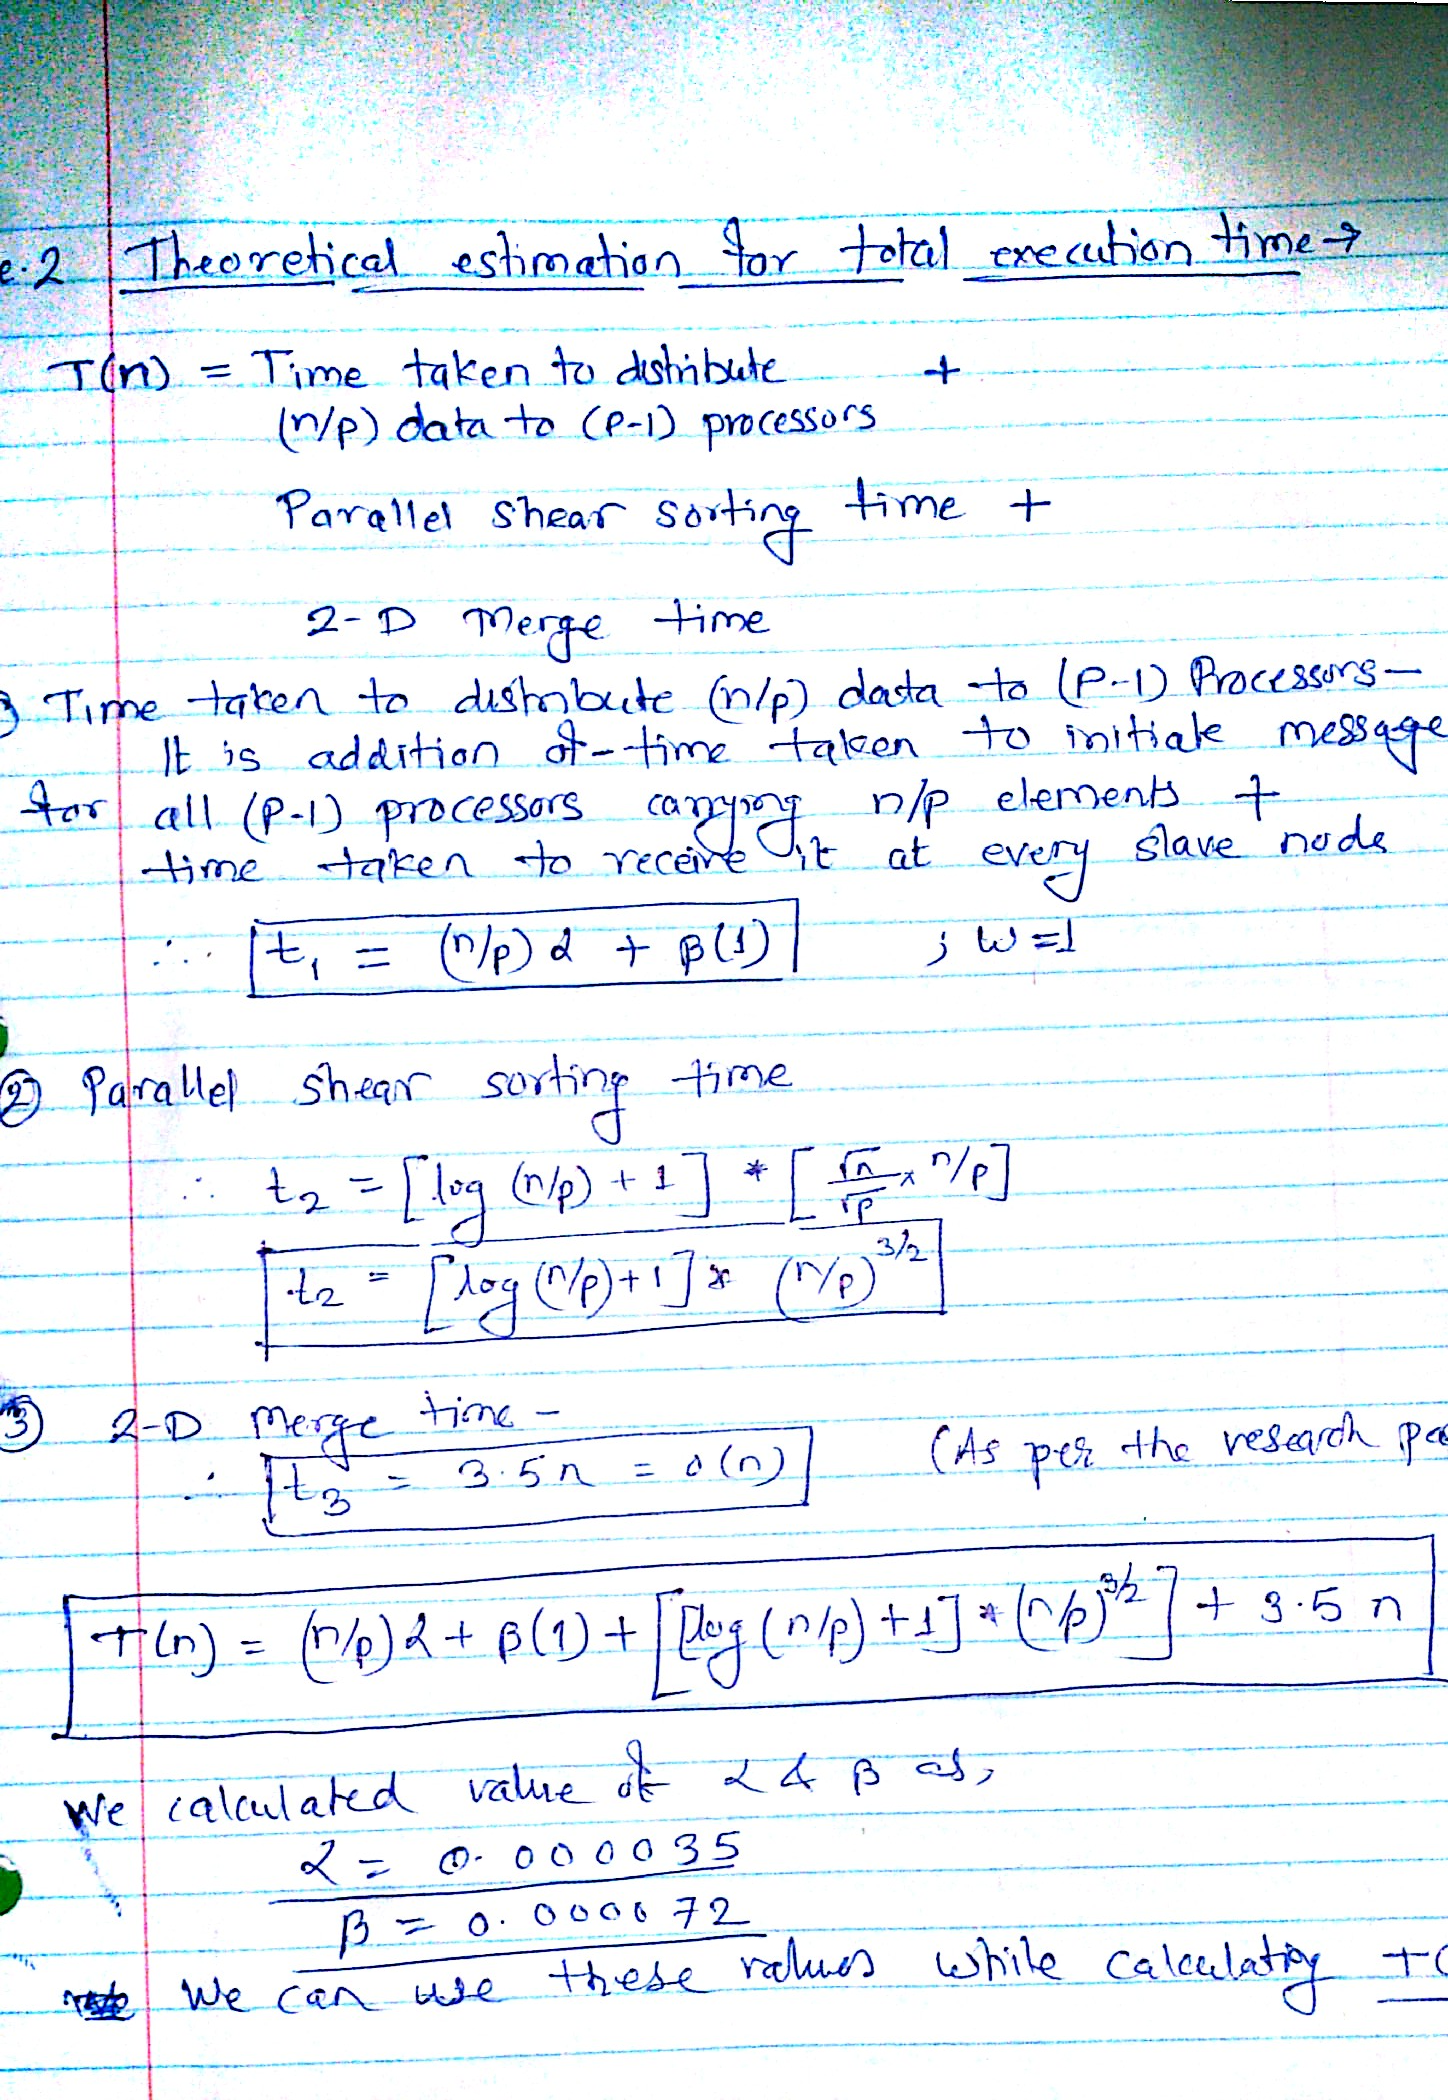 e.2 Theoretical estimation for total execution time →
T(n) = Time taken to distribute +
(n/p) data to (P-1) processors
Parallel shear sorting time +
2-D merge time
Time taken to distribute (n/p) data to (P-1) Processors —
It is addition of time taken to initiate message
for all (P-1) processors carrying n/p elements +
time taken to receive it at every slave node
∴ t₁ = (n/p) α + β(1) ; W=1
② Parallel shear sorting time
∴ t₂ = [log (n/p) + 1] * [√n/√p × n/p]
t₂ = [log (n/p) + 1] * (n/p)^3/2
③ 2-D merge time -
∴ t₃ = 3.5n = O(n) (As per the research
T(n) = (n/p) α + β(1) + [[log (n/p) + 1] * (n/p)^3/2] + 3.5 n
We calculated value of α & β as,
α = 0.000035
β = 0.000072
We can use these values while calculating